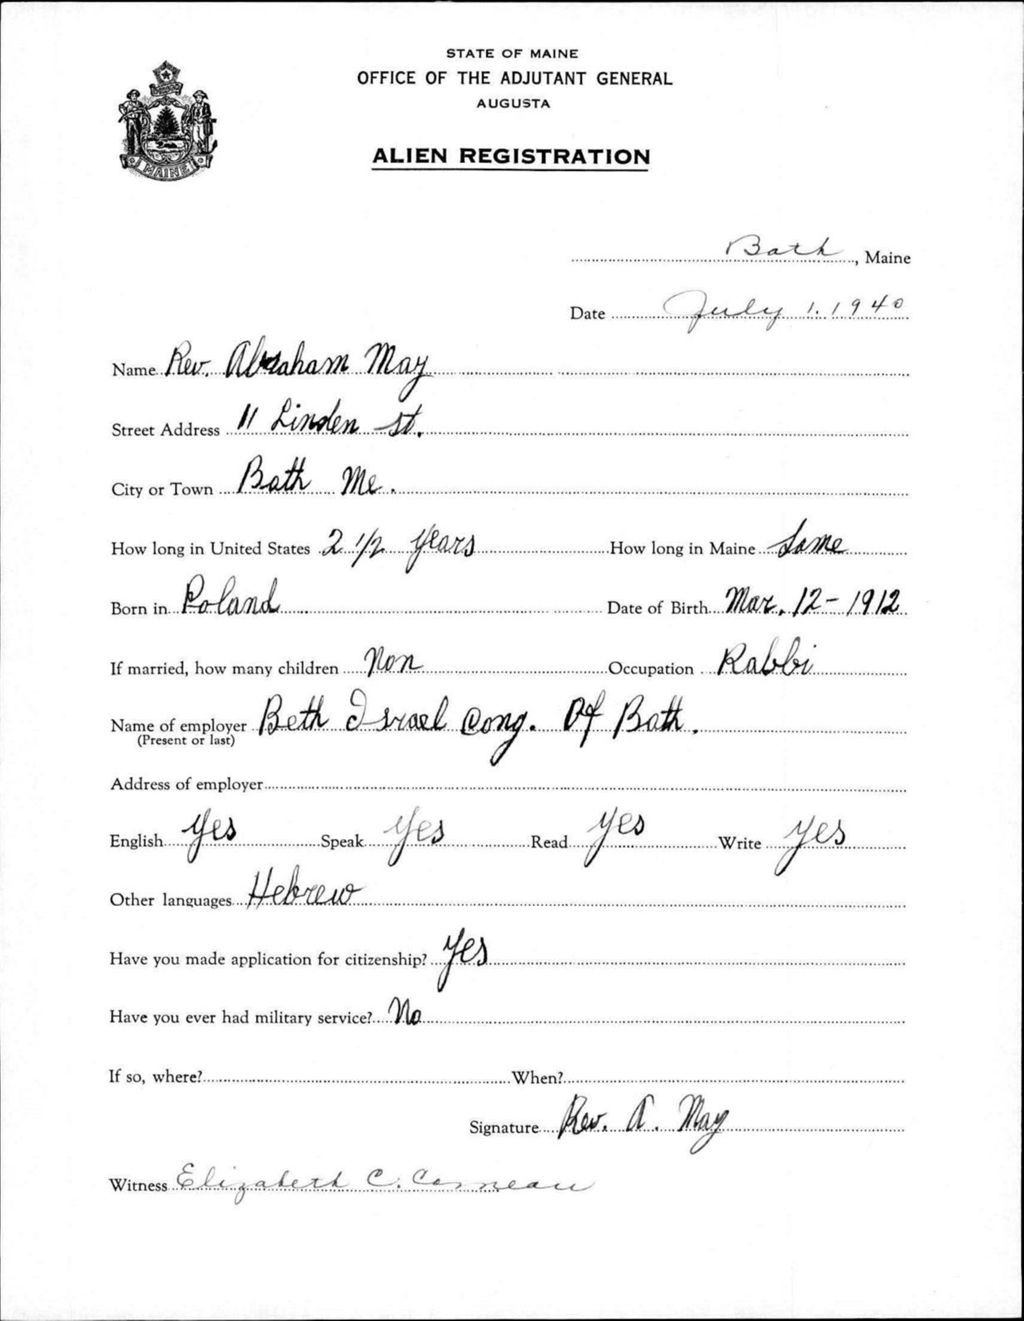 STATE OF MAINE
OFFICE OF THE ADJUTANT GENERAL
AUGUSTA
ALIEN REGISTRATION
MAINE
Bath, Maine
Date July 1. 1940
Name Rev. Abraham May
Street Address 11 Linden St.
City or Town Bath Me.
How long in United States 2 1/2 years How long in Maine Same
Born in Poland Date of Birth Mar. 12 - 1912
If married, how many children Non Occupation Rabbi
Name of employer Beth Israel Cong. Of Bath.
(Present or last)
Address of employer
English Yes Speak Yes Read Yes Write Yes
Other languages Hebrew
Have you made application for citizenship? Yes
Have you ever had military service? No
If so, where? When?
Signature Rev. A. May
Witness Elizabeth C. Comeau